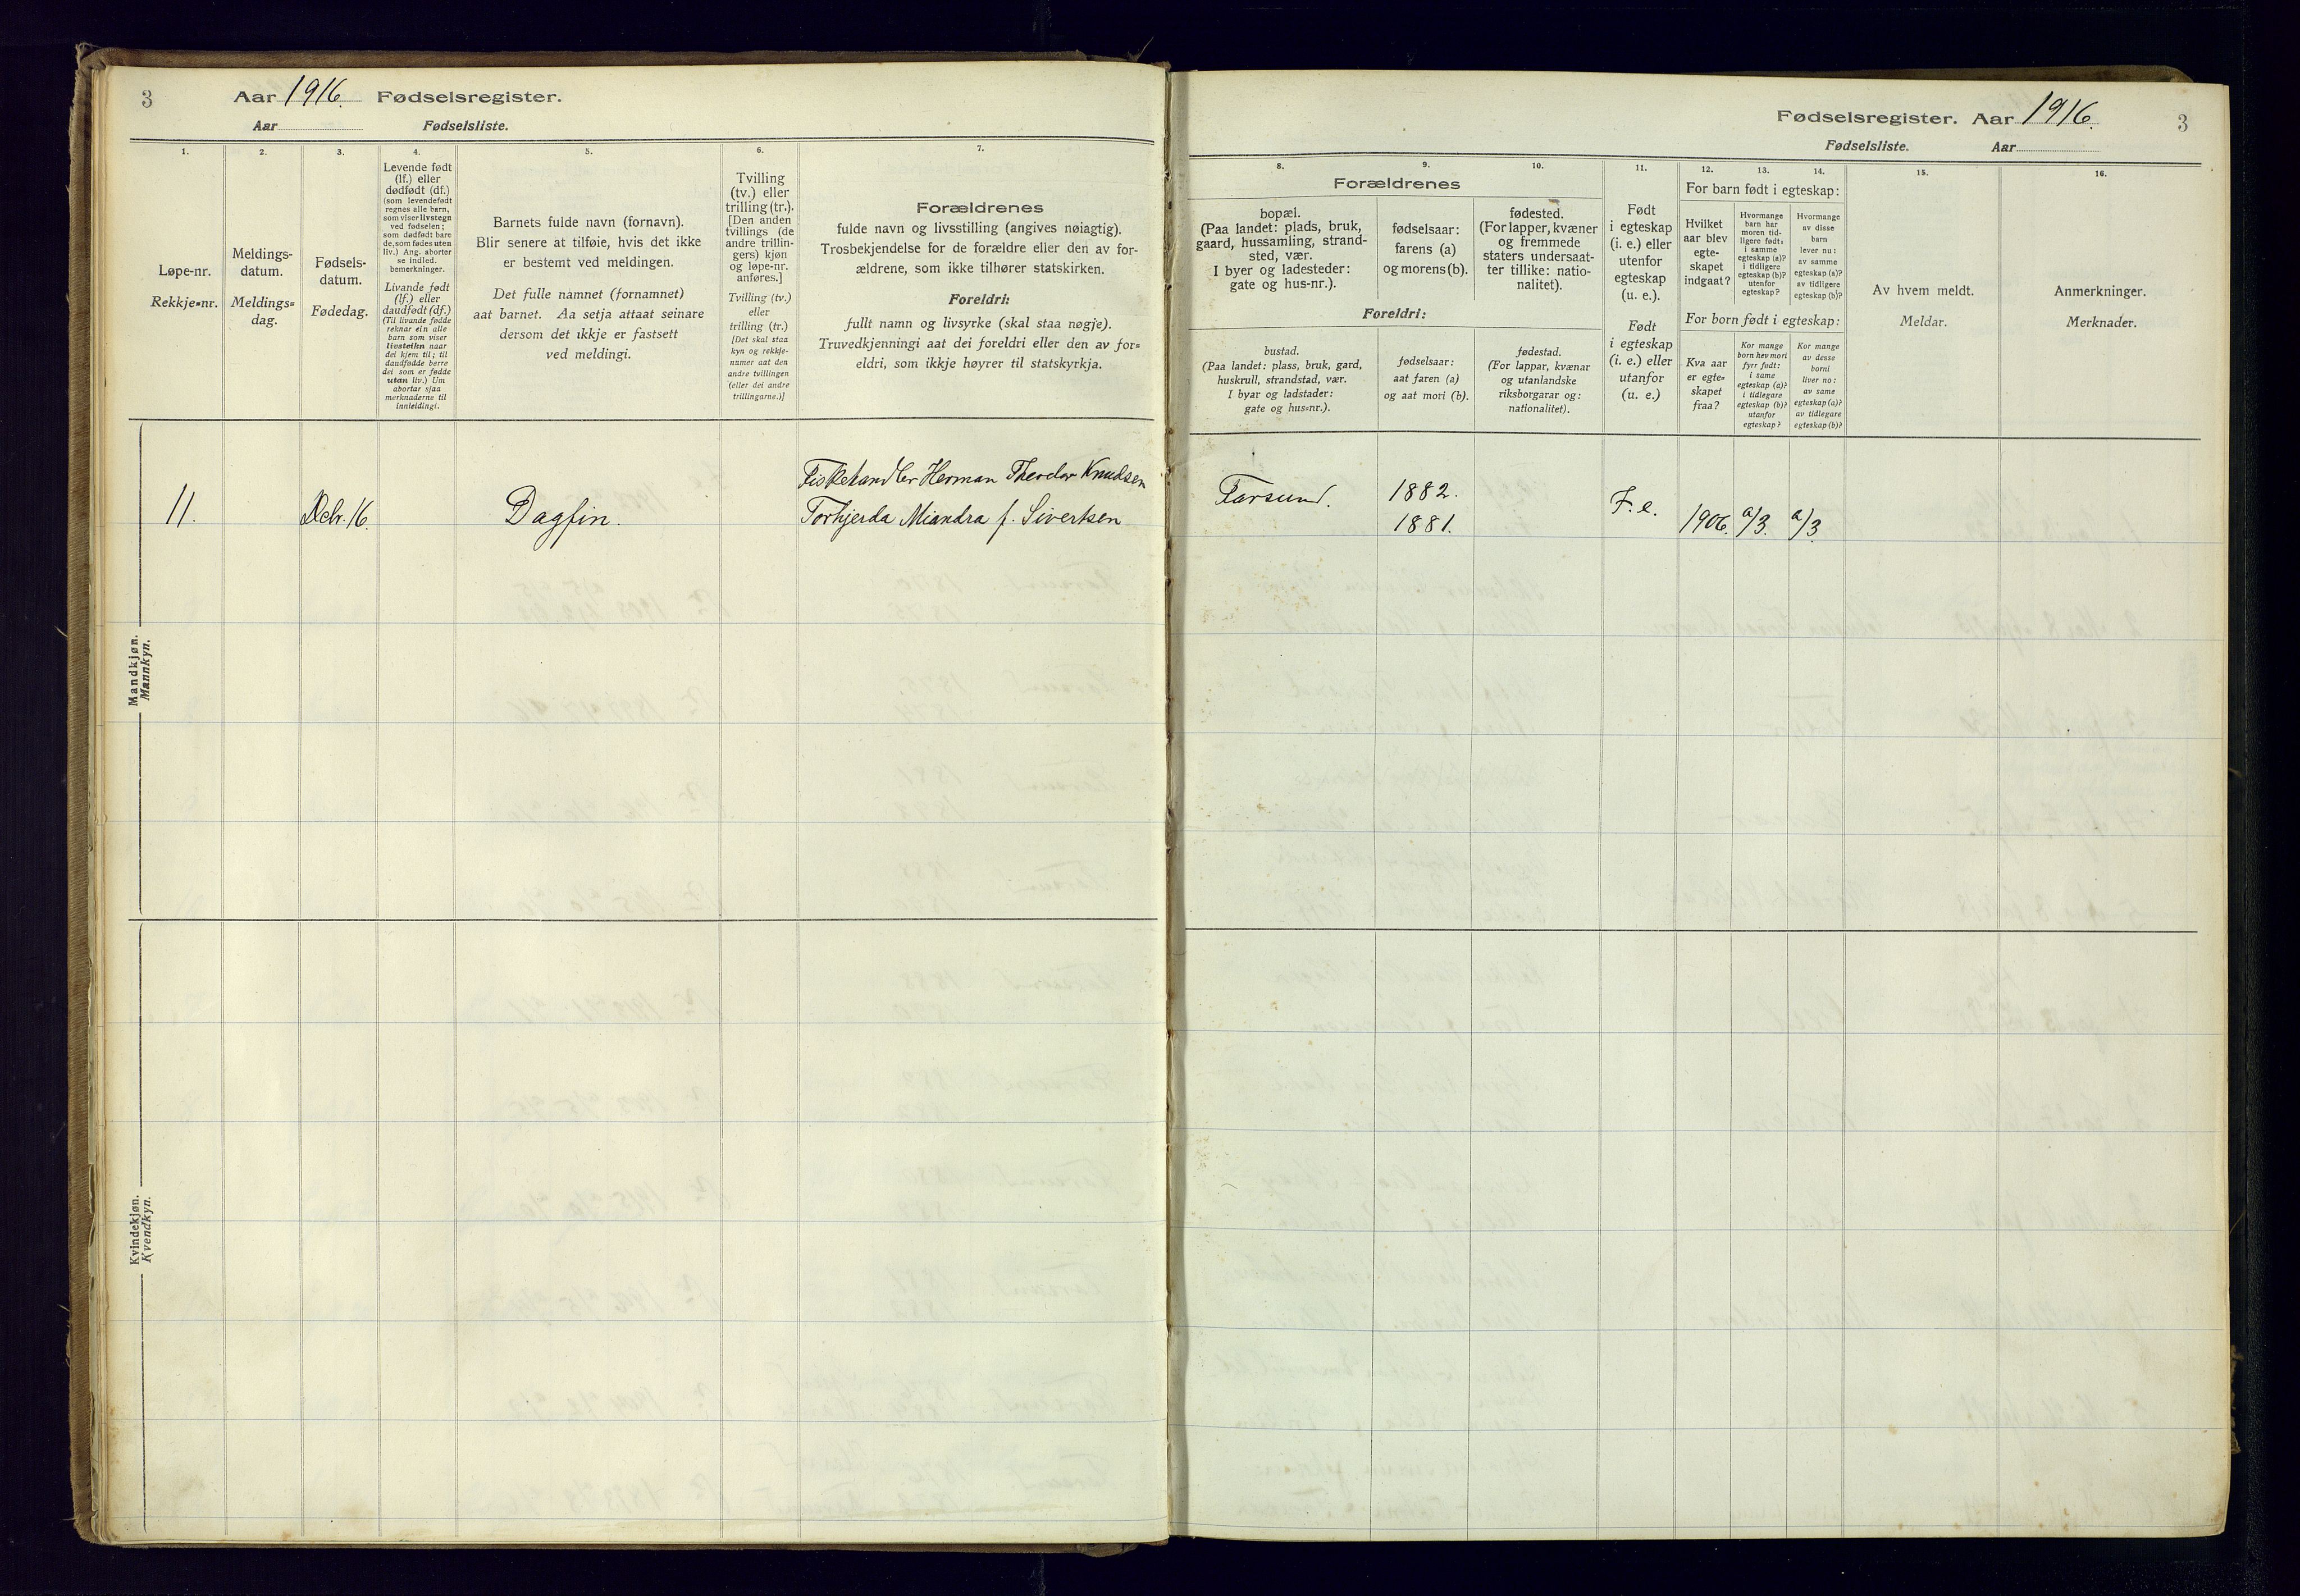 3 Aar 1916. Fødselsregister.
Aar Fødselsliste.
1.
Løpe-nr.
Rekkje=nr.
2.
Meldings-
datum.
Meldings=
dag.
3.
Fødsels-
datum.
Fødedag.
4.
Levende født
(lf.) eller
dødfødt (df.)
(som levendefødt
regnes alle barn,
som viser livstegn
ved fødselen;
som dødfødt bare
de, som fødes uten
liv.) Ang. aborter
se indled.
bemerkninger.
Livande født
(lf.) eller
daudfødt (df.)
(Til livande fødde
reknar ein alle
barn som viser
livsteikn naar
dei kjem til; til
daudfødde berre
dei som er fødde
utan liv.) Um
abortar sjaa
merknaderne til
innleidingi.
5.
Barnets fulde navn (fornavn).
Blir senere at tilføie, hvis det ikke
er bestemt ved meldingen.
Det fulle namnet (fornamnet)
aat barnet. Aa setja attaat seinare
dersom det ikkje er fastsett
ved meldingi.
6.
Tvilling
(tv.) eller
trilling (tr.).
[Den anden
tvillings (de
andre trillin-
gers) kjøn
og løpe-nr.
anføres.]
Tvilling (tv.)
eller
trilling (tr.)
[Det skal staa
kyn og rekkje-
numer aat den
andre tvillingen
(eller dei andre
trillingarne.)]
7.
Forældrenes
fulde navn og livsstilling (angives nøiagtig).
Trosbekjendelse for de forældre eller den av for-
ældrene, som ikke tilhører statskirken.
Foreldri:
fullt namn og livsyrke (skal staa nøgje).
Truvedkjenningi aat dei foreldri eller den av for=
eldri, som ikkje høyrer til statskyrkja.
Mandkjøn.
Mannkyn.
11. Dcbr. 16. Dagfin.
Fiskehandler Herman Theodor Knudsen
Torhjerda Miandra f. Sivertsen
Kvindekjøn.
Kvendkyn.
Fødselsregister. Aar 1916. 3
Fødselsliste. Aar
8. 9. 10.
Forældrenes
bopæl.
(Paa landet: plads, bruk,
gaard, hussamling, strand-
sted, vær.
I byer og ladesteder:
gate og hus-nr.).
fødselsaar:
farens (a)
og morens (b).
fødested.
(For lapper, kvæner
og fremmede
staters undersaat-
ter tillike: natio-
nalitet).
Foreldri:
bustad.
(Paa landet: plass, bruk, gard,
huskrull, strandstad, vær.
I byar og ladstader:
gate og hus=nr.).
fødselsaar:
aat faren (a)
og aat mori (b).
fødestad.
(For lappar, kvænar
og utanlandske
riksborgarar og:
nationalitet).
11.
Født
i egteskap
(i. e.) eller
utenfor
egteskap
(u. e.).
Født
i egteskap
(i. e.) eller
utanfor
(u. e.)
12. 13. 14.
For barn født i egteskap:
Hvilket
aar blev
egte-
skapet
indgaat?
Hvormange
barn har
moren tid-
ligere født:
i samme
egteskap (a)?
i tidligere
egteskap (b)?
utenfor
egteskap?
Hvormange
av disse
barn
lever nu:
av samme
egteskap (a)?
av tidligere
egteskap (b)?
For born født i egteskap:
Kva aar
er egte=
skapet
fraa?
Kor mange
born hev mori
fyrr født:
i same
egteskap (a)?
i tidlegare
egteskap (b)?
utanfor
egteskap?
Kor mange
av desse
borni
liver no:
av same
egteskap (a)?
av tidlegare
egteskap (b)?
15.
Av hvem meldt.
Meldar.
16.
Anmerkninger.
Merknader.
Farsund. 1882.
1881.
F. e. 1906. a/3. a/3.